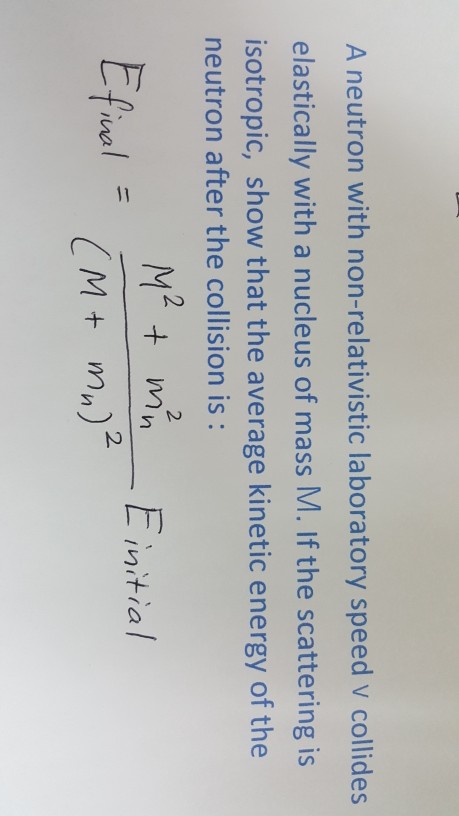 A neutron with non-relativistic laboratory speed v collides
elastically with a nucleus of mass M. If the scattering is
isotropic, show that the average kinetic energy of the
neutron after the collision is :
E final = (M² + mₙ²) / (M + mₙ)² E initial